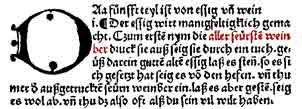 Das fünffte teyl ist von essig vñ wein
i. Der essig wirt manigfeltigklich gemacht.
Czum erste nym die aller seürste wein
ber druck sie auß seig sie durch ein tuch. geüß
darein gutte alte essig laß es sten. so es
sich gesetzt hat seig es vō den hefen. vñ thu
mer d̾ außgetruckte seürn weinber ein. laß es aber gesten. seig
es wol ab. vñ thu dz also of als du sein vil wilt haben.